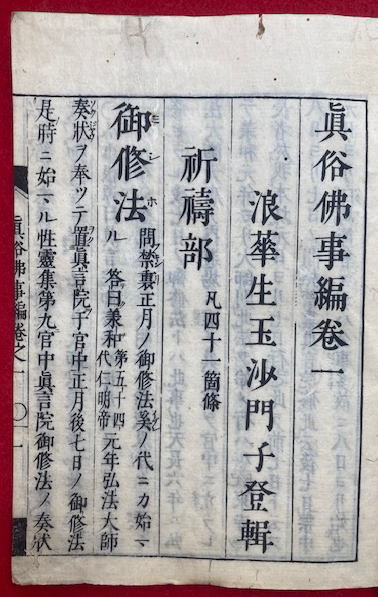 眞俗佛事編卷一
浪華生玉沙門子登輯
祈禱部 凡四十一箇條
御修法 ミシホ 問禁裏正月ノ御修法奚ノ代ニカ始マル 答曰羕和 第五十四代仁明帝 元年弘法大師
奏狀ヲ奉ツテ置眞言院于官中正月後七日ノ御修法
是時ニ始マル性靈集第九官中眞言院御修法ノ奏狀
眞俗佛事編卷之一 〇一